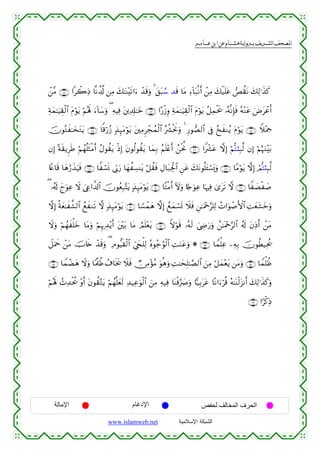 المصحف الشريف برواية هشام عن ابن عامر
كَذَٰلِكَ نَقُصُّ عَلَيْكَ مِنْ أَنۢبَآءِ مَا قَد سَّبَقَ ۚ وَقَدْ ءَاتَيْنَٰكَ مِن لَّدُنَّا ذِكْرًا ۝ مَّنْ
أَعْرَضَ عَنْهُ فَإِنَّهُۥ يَحْمِلُ يَوْمَ ٱلْقِيَٰمَةِ وِزْرًا ۝ خَٰلِدِينَ فِيهِ ۖ وَسَآءَ لَهُمْ يَوْمَ ٱلْقِيَٰمَةِ
حِمْلًا ۝ يَوْمَ يُنفَخُ فِى ٱلصُّورِ ۚ وَنَحْشُرُ ٱلْمُجْرِمِينَ يَوْمَئِذٍ زُرْقًا ۝ يَتَخَٰفَتُونَ
بَيْنَهُمْ إِن لَّبِثْتُمْ إِلَّا عَشْرًا ۝ نَّحْنُ أَعْلَمُ بِمَا يَقُولُونَ إِذْ يَقُولُ أَمْثَلُهُمْ طَرِيقَةً إِن
لَّبِثْتُمْ إِلَّا يَوْمًا ۝ وَيَسْـَٔلُونَكَ عَنِ ٱلْجِبَالِ فَقُلْ يَنسِفُهَا رَبِّى نَسْفًا ۝ فَيَذَرُهَا قَاعًا
صَفْصَفًا ۝ لَّا تَرَىٰ فِيهَا عِوَجًا وَلَآ أَمْتًا ۝ يَوْمَئِذٍ يَتَّبِعُونَ ٱلدَّاعِىَ لَا عِوَجَ لَهُۥ ۖ
وَخَشَعَتِ ٱلْأَصْوَاتُ لِلرَّحْمَٰنِ فَلَا تَسْمَعُ إِلَّا هَمْسًا ۝ يَوْمَئِذٍ لَّا تَنفَعُ ٱلشَّفَٰعَةُ إِلَّا
مَنْ أَذِنَ لَهُ ٱلرَّحْمَٰنُ وَرَضِىَ لَهُۥ قَوْلًا ۝ يَعْلَمُ مَا بَيْنَ أَيْدِيهِمْ وَمَا خَلْفَهُمْ وَلَا
يُحِيطُونَ بِهِۦ عِلْمًا ۝ وَعَنَتِ ٱلْوُجُوهُ لِلْحَىِّ ٱلْقَيُّومِ ۖ وَقَدْ خَابَ مَنْ حَمَلَ
ظُلْمًا ۝ وَمَن يَعْمَلْ مِنَ ٱلصَّٰلِحَٰتِ وَهُوَ مُؤْمِنٌ فَلَا يَخَافُ ظُلْمًا وَلَا هَضْمًا ۝
وَكَذَٰلِكَ أَنزَلْنَٰهُ قُرْءَانًا عَرَبِيًّا وَصَرَّفْنَا فِيهِ مِنَ ٱلْوَعِيدِ لَعَلَّهُمْ يَتَّقُونَ أَوْ يُحْدِثُ لَهُمْ
ذِكْرًا ۝
الحرف المخالف لحفص الإدغام الإمالة
الشبكة الإسلامية www.islamweb.net